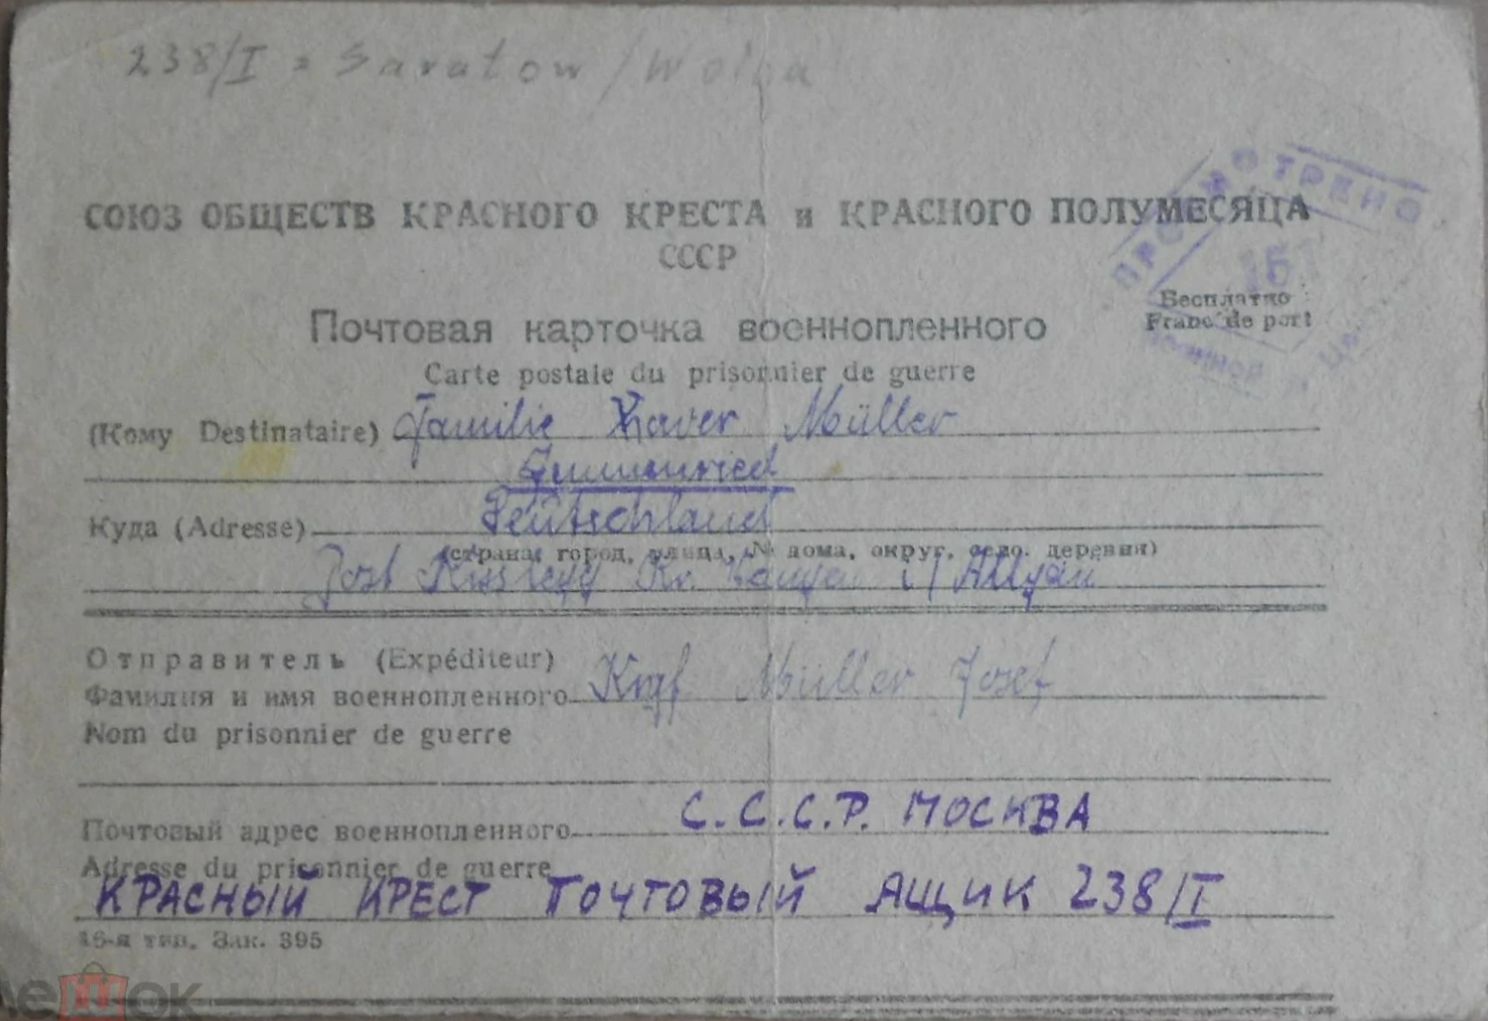 238/I = Saratow / Wolga
СОЮЗ ОБЩЕСТВ КРАСНОГО КРЕСТА и КРАСНОГО ПОЛУМЕСЯЦА
СССР
ПРОСМОТРЕНО
Бесплатно
Franc de port
Почтовая карточка военнопленного
Carte postale du prisonnier de guerre
(Кому Destinataire) Familie Xaver Müller
Gummenried
Куда (Adresse) Deutschland
(страна, город, улица, № дома, округ, село, деревня)
Post Kisslegg Kr. Wangen i/ Allgäu
Отправитель (Expéditeur)
Фамилия и имя военнопленного Krgf Müller Josef
Nom du prisonnier de guerre
Почтовый адрес военнопленного С.С.С.Р. МОСКВА
Adresse du prisonnier de guerre
КРАСНЫЙ КРЕСТ ПОЧТОВЫЙ ЯЩИК 238/I
16-я тип. Зак. 395